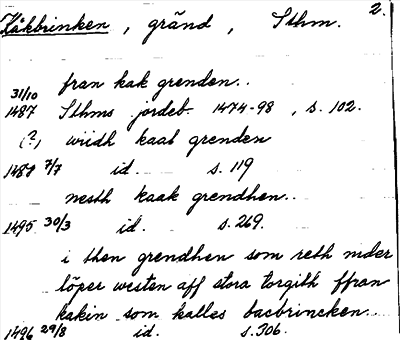 Kåkbrinken, gränd, Sthm. 2.
fran kak grenden..
31/10
1487 Sthms jordeb. 1474-98, s. 102.
(?) wiidh kaal grenden
1487 7/7 id. s. 119
nesth kaak grendhen..
1495 30/3 id. s. 269.
i then grendhen som reth nider
löper westen aff stora torgith ffran
kakin som kalles bacbrincken..
1496 29/8 id. s. 306.